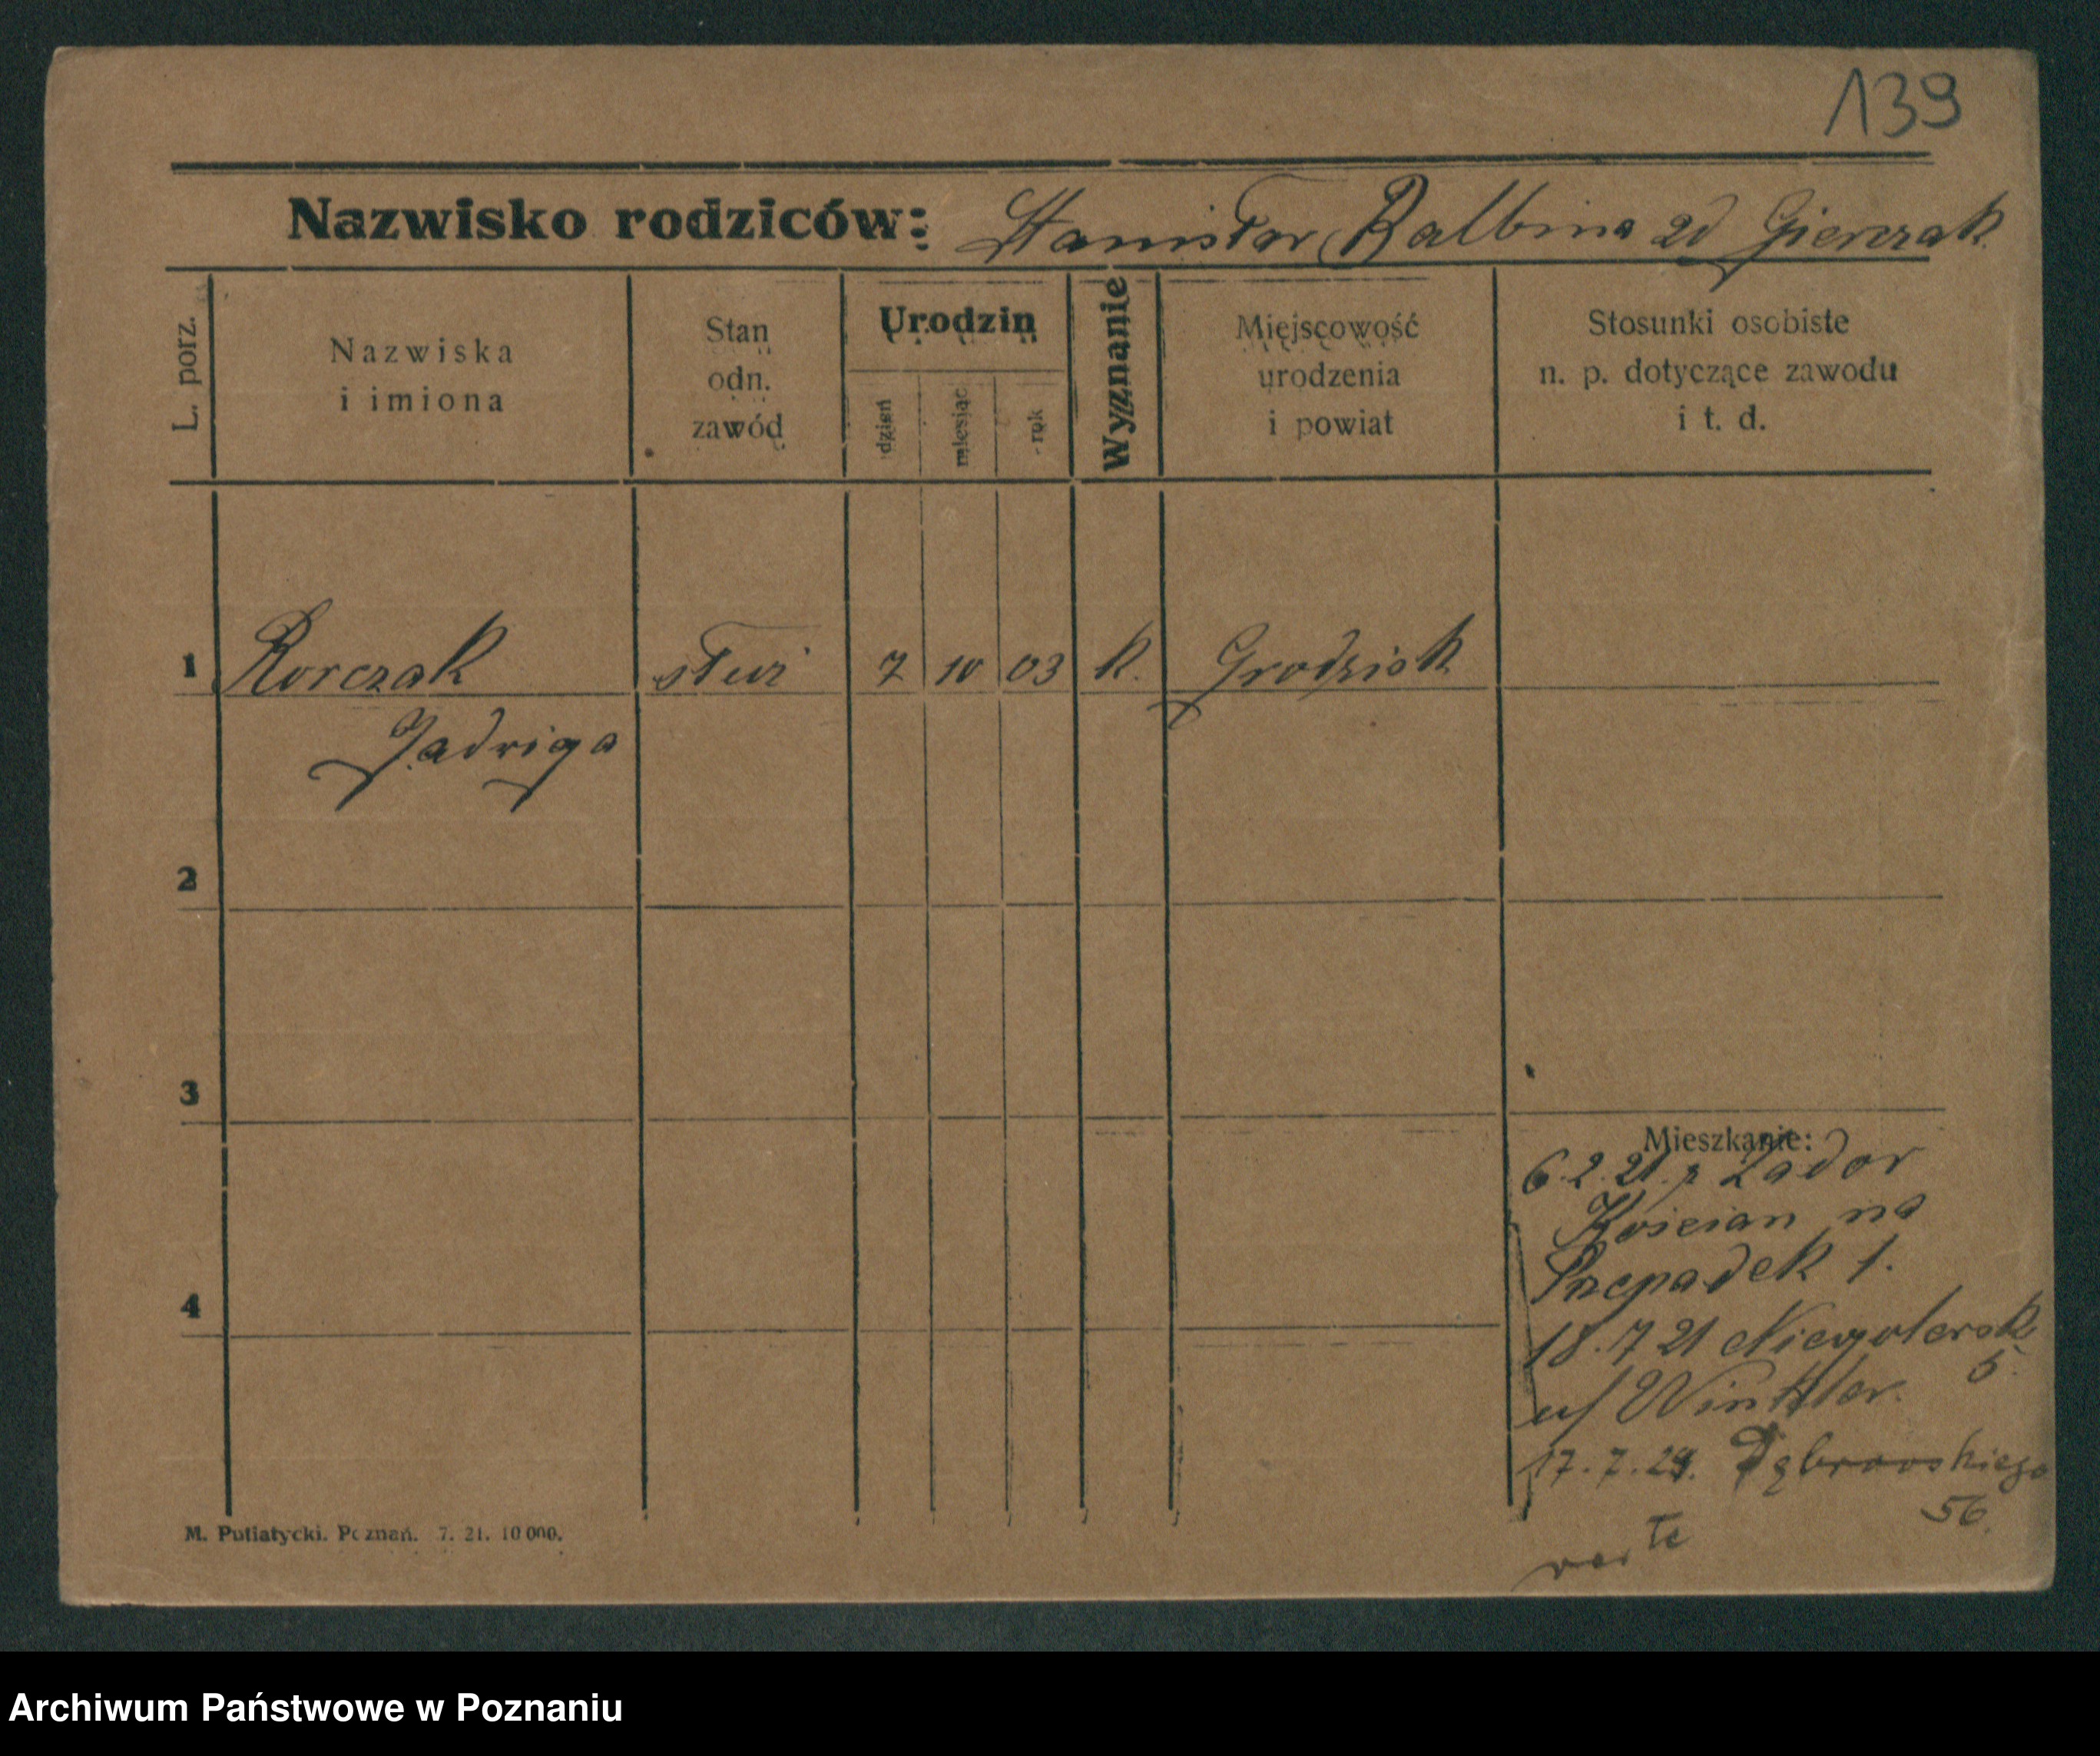 139
Nazwisko rodziców: Stanisław, Balbina zd Gierczak
L. porz.
Nazwiska i imiona
Stan odn. zawód
Urodzin
dzień
miesiąc
rok
Wyznanie
Miejscowość urodzenia i powiat
Stosunki osobiste n. p. dotyczące zawodu i t. d.
1 Korczak służ 7 10 03 k. Grodzisk
Jadwiga
2
3
4
Mieszkanie:
6.2.21. z
Kościan na
Przepadek 1.
18.7 21 Niegolewsk
5.
u/ Winkler.
17.7.24. Dąbrowskiego
56.
M. Putiatycki. Poznań. 7. 21. 10 000.
Archiwum Państwowe w Poznaniu